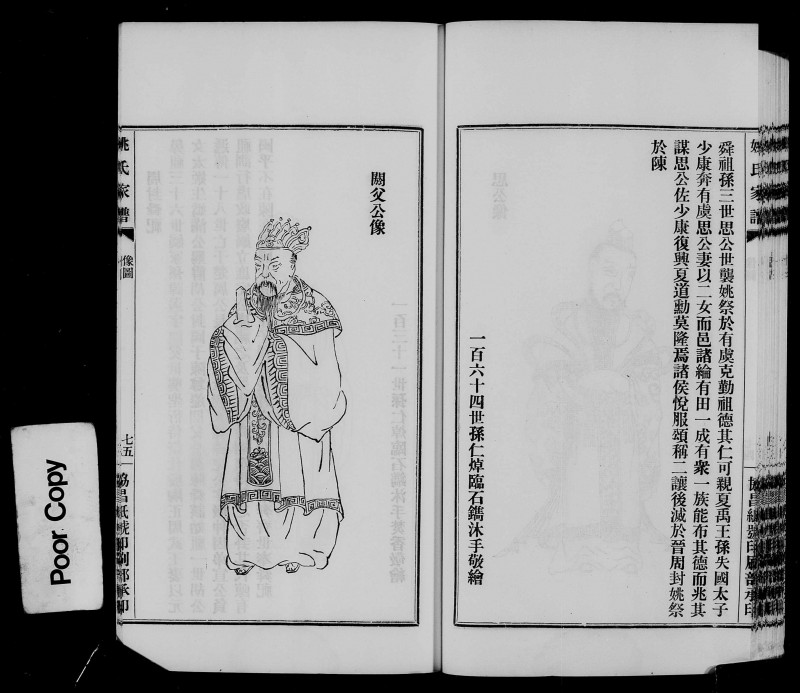 舜祖孫三世思公世襲姚祭於有虞克勤祖德其仁可親夏禹王孫失國太子
少康奔有虞思公妻以二女而邑諸綸有田一成有衆一族能布其德而兆其
謀思公佐少康復興夏道勳莫隆焉諸侯悅服頌稱二讓後滅於晉周封姚祭
於陳
一百六十四世孫仁焯臨石鐫沐手敬繪
閼父公像
姚氏家譜
像圖
七五
協昌紙號印刷部承印
Poor Copy